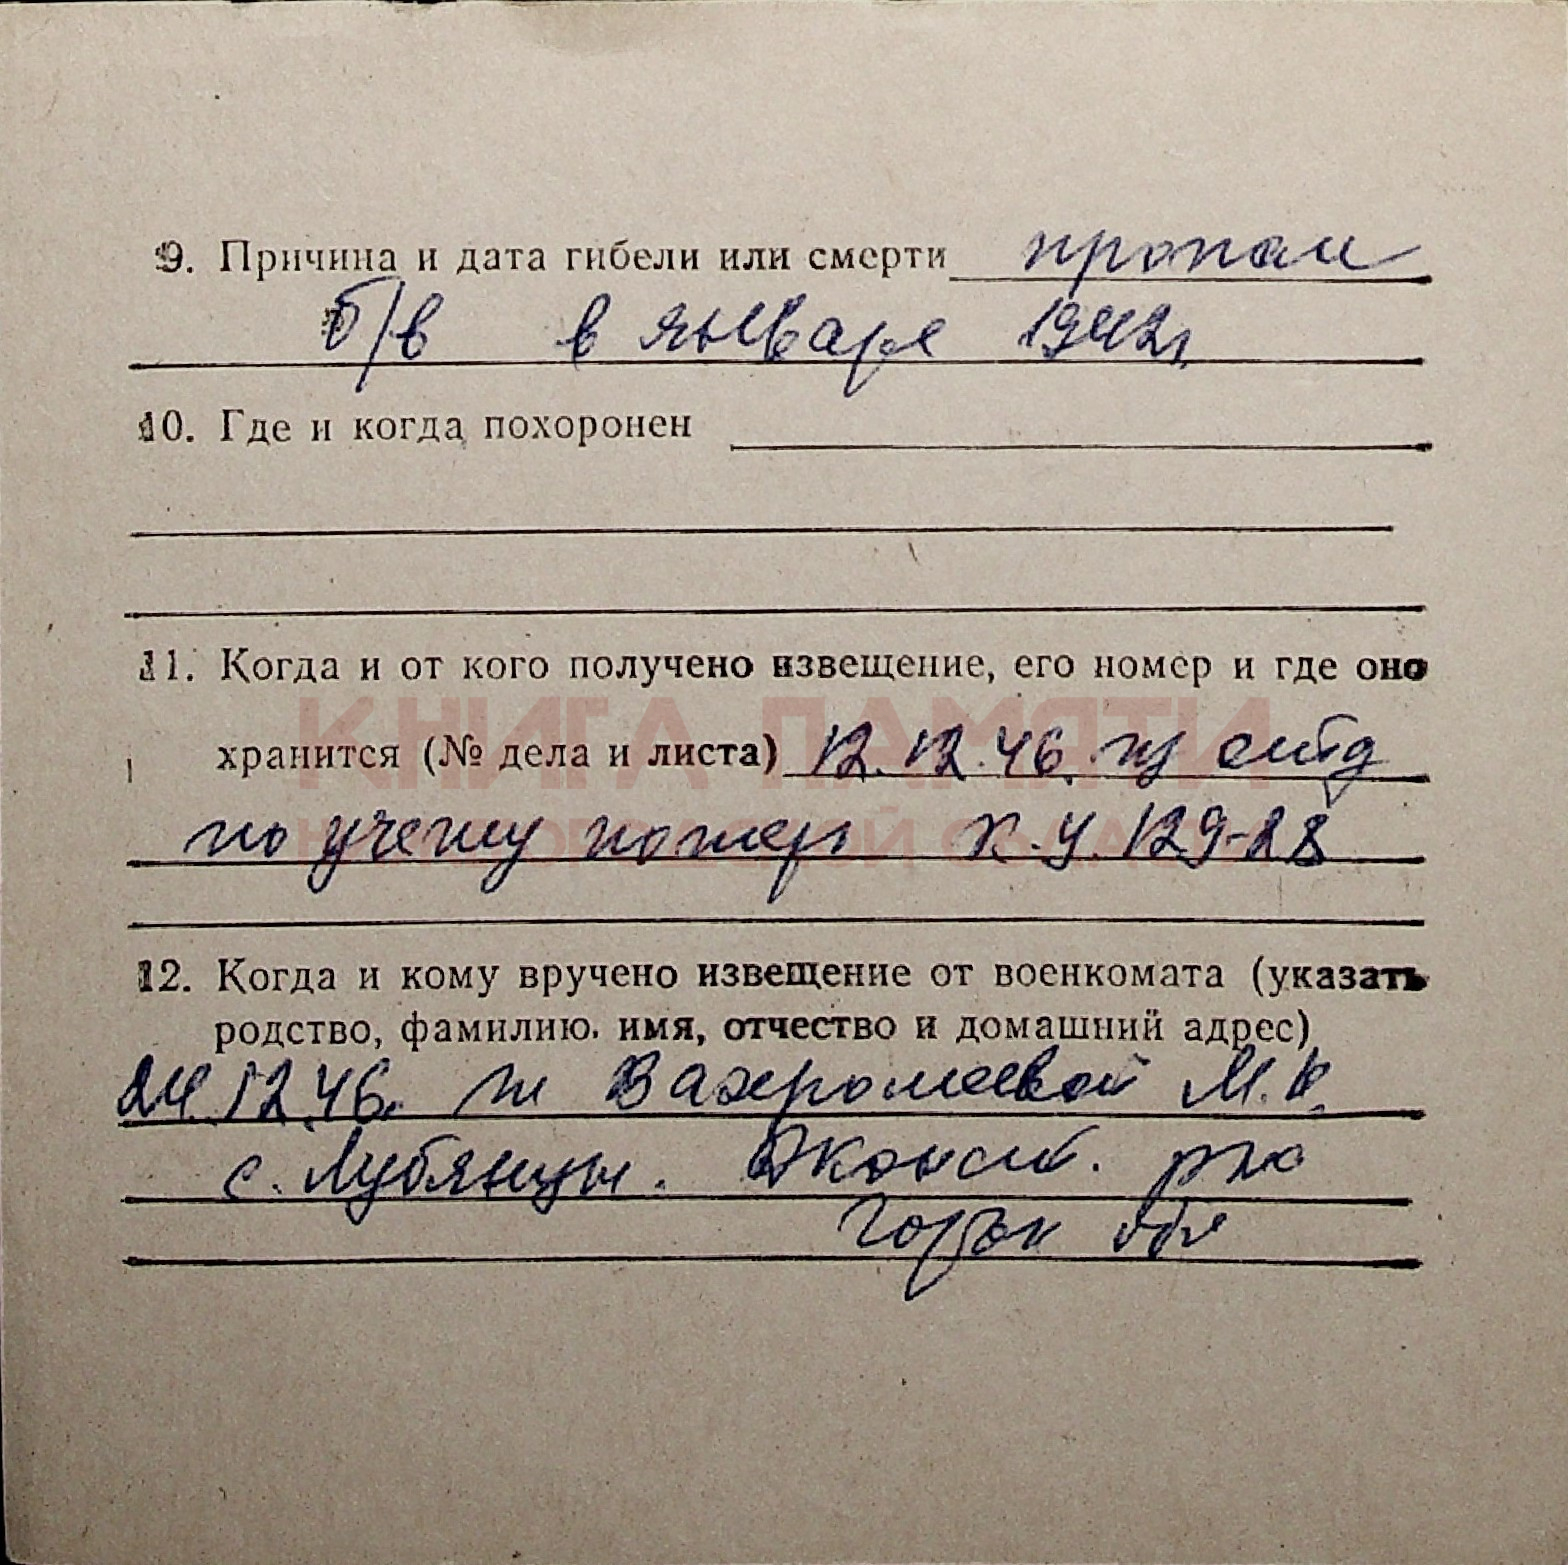 9. Причина и дата гибели или смерти пропал
б/в в январе 1942г
10. Где и когда похоронен
11. Когда и от кого получено извещение, его номер и где оно
КНИГА ПАМЯТИ
хранится (№ дела и листа) 12.12.46. из отд
по учету потерь К.У. 129-28
12. Когда и кому вручено извещение от военкомата (указать
родство, фамилию, имя, отчество и домашний адрес)
24 12 46. Вахромеевой М. К.
с. Лубянцы.
Горьк обл